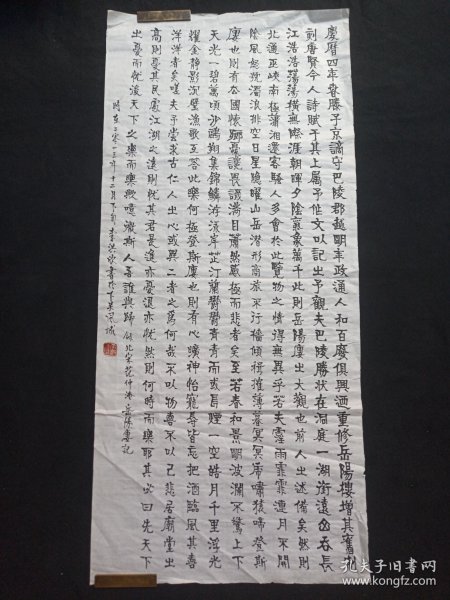 慶曆四年春滕子京謫守巴陵郡越明年政通人和百廢俱興迺重修岳陽樓增其舊制
刻唐賢今人詩賦于其上屬予作文以記之予觀夫巴陵勝狀在洞庭一湖銜遠山吞長
江浩浩蕩蕩橫無際涯朝暉夕陰氣象萬千此則岳陽樓之大觀也前人之述備矣然則
北通巫峽南極瀟湘遷客騷人多會於此覽物之情得無異乎若夫霪雨霏霏連月不開
陰風怒號濁浪排空日星隱曜山岳潛形商旅不行檣傾楫摧薄暮冥冥虎嘯猿啼登斯
樓也則有去國懷鄉憂讒畏譏滿目蕭然感極而悲者矣至若春和景明波瀾不驚上下
天光一碧萬頃沙鷗翔集錦鱗游泳岸芷汀蘭鬱鬱青青而或長煙一空皓月千里浮光
耀金靜影沉璧漁歌互答此樂何極登斯樓也則有心曠神怡寵辱皆忘把酒臨風其喜
洋洋者矣嗟夫予嘗求古仁人之心或異二者之為何哉不以物喜不以己悲居廟堂之
高則憂其民處江湖之遠則憂其君是進亦憂退亦憂然則何時而樂耶其必曰先天下
之憂而憂後天下之樂而樂歟噫微斯人吾誰與歸 錄北宋范仲淹岳陽樓記
時在二零一三年十二月下旬
孔夫子旧书网